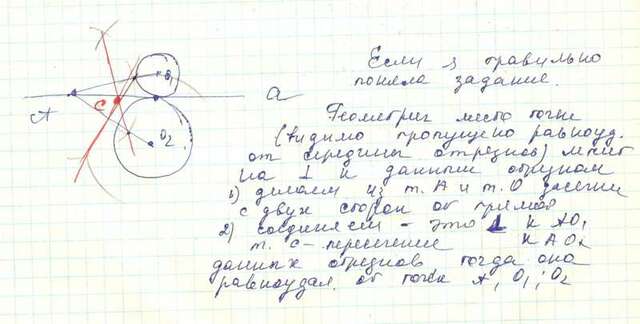 Если я правильно
поняла задание.
A
C
O1
O2
a
Геометриг место точек
(видимо пропущено равноуд.
от середины отрезков) лежит
на ⊥ к данным отрезкам
1) делаем из т. A и т. O засечки
с двух сторон от прямой
2) соединяем - это ⊥ к AO1
т. С - пересечение к AO2
данных отрезков тогда она
равноудал. от точек A, O1; O2